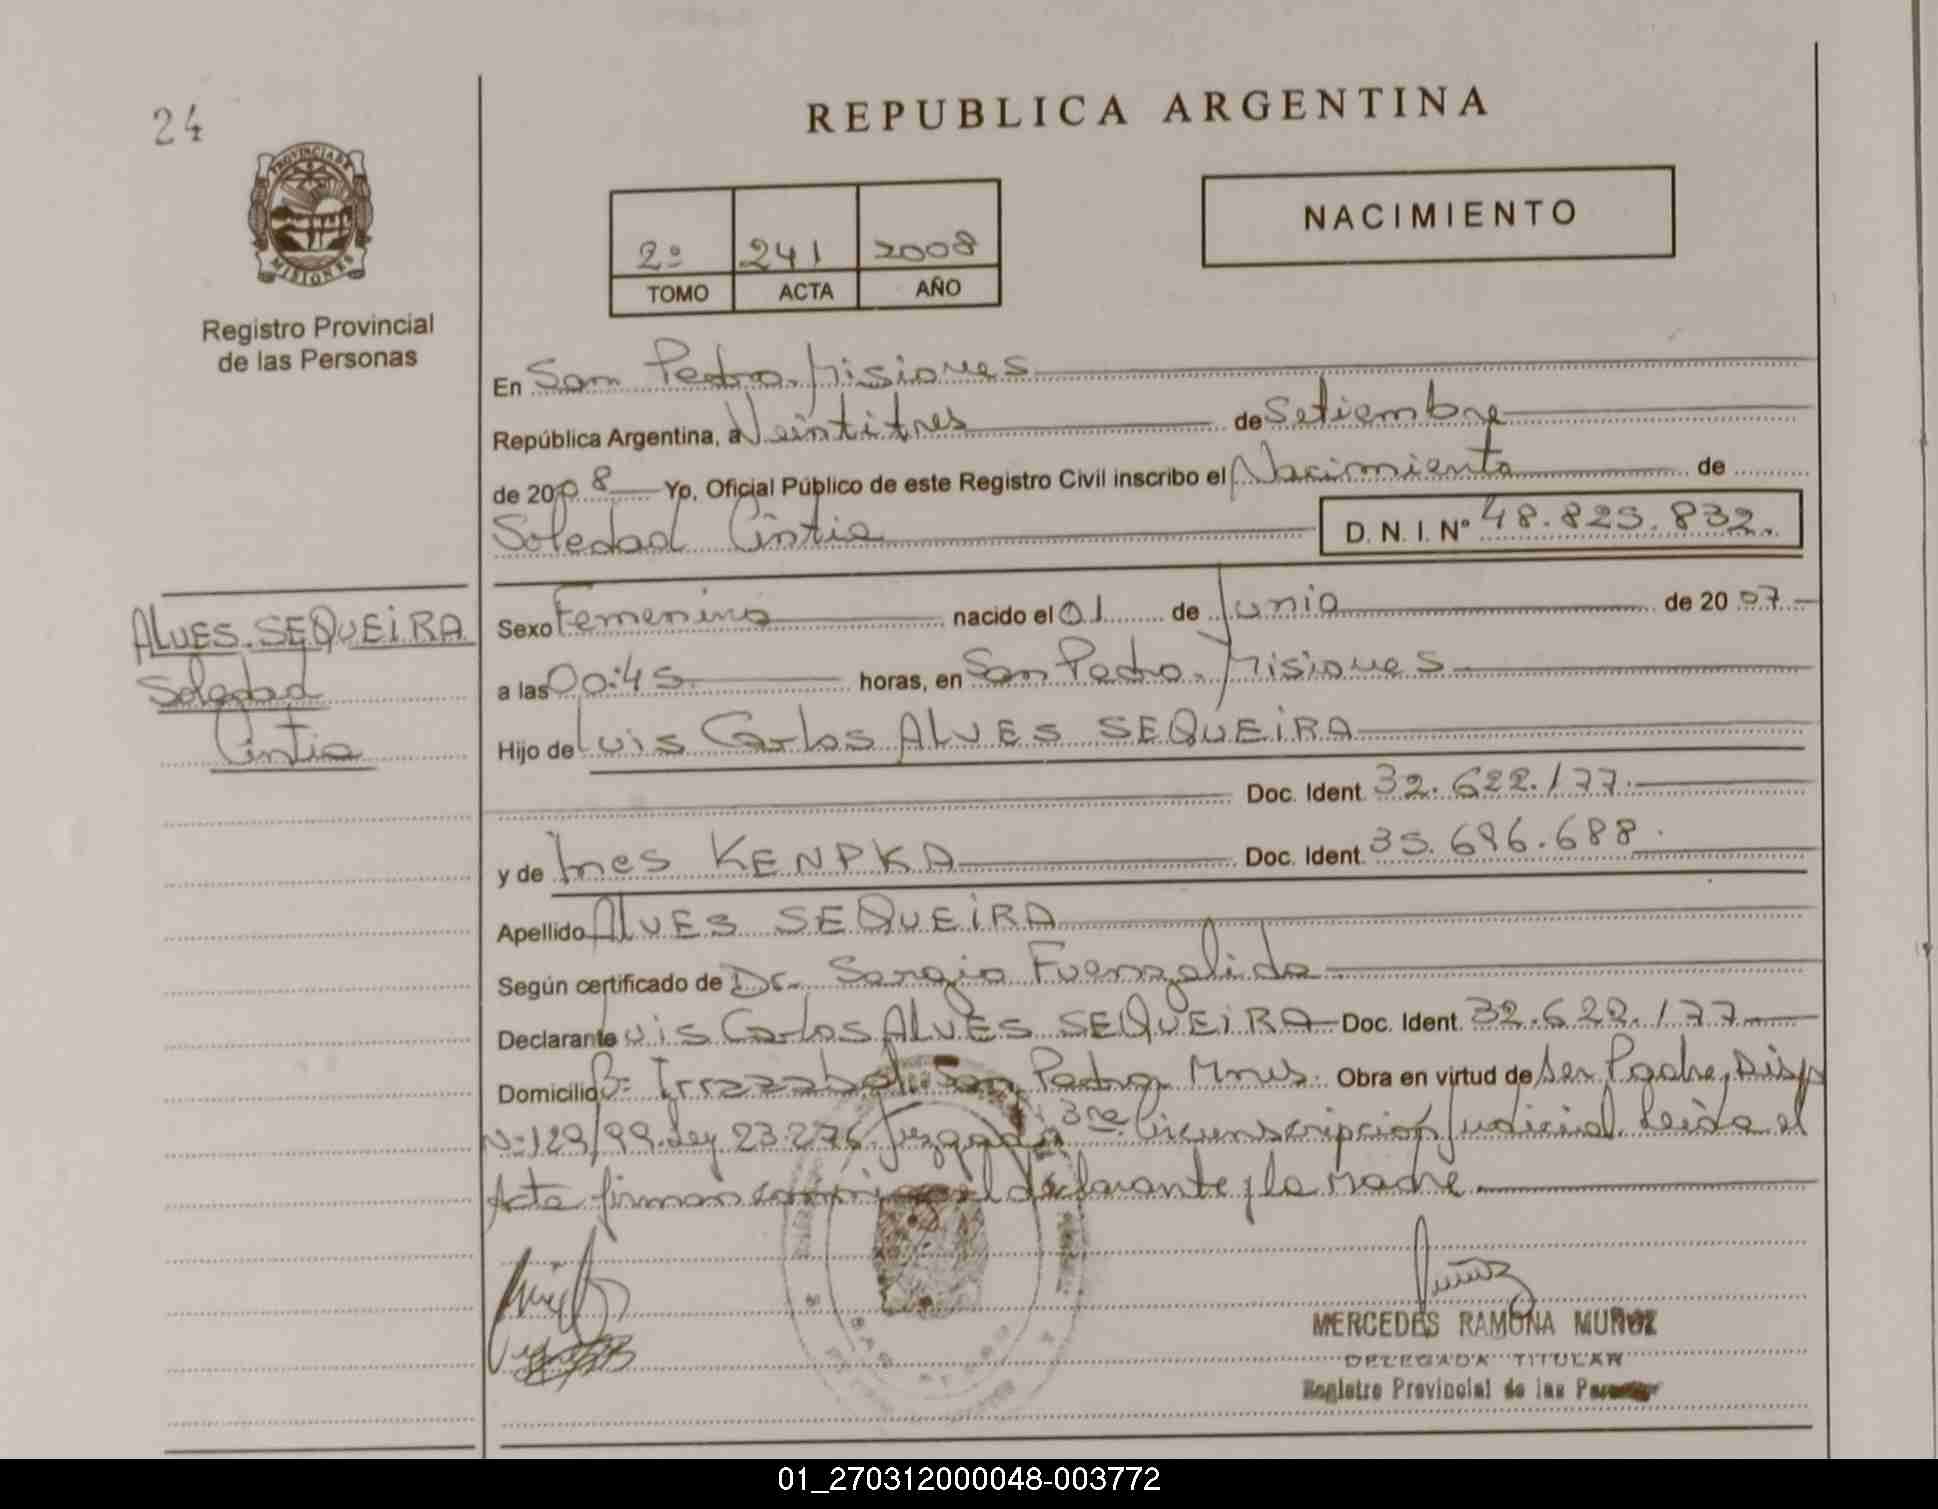 24
PROVINCIA DE
MISIONES
Registro Provincial
de las Personas
REPUBLICA ARGENTINA
2º 241 2008
TOMO ACTA AÑO
NACIMIENTO
En San Pedro. Misiones
República Argentina, a Veintitres de Setiembre
de 2008 Yo, Oficial Público de este Registro Civil inscribo el Nacimiento de
Soledad Cintia D. N. I. Nº 48.825.832.
ALVES SEQUEIRA
Soledad
Cintia
Sexo Femenino nacido el 01 de Junio de 2007
a las 00:45 horas, en San Pedro. Misiones
Hijo de Luis Carlos ALVES SEQUEIRA
Doc. Ident. 32.622.177.
y de Ines KENPKA Doc. Ident. 35.696.688.
Apellido ALVES SEQUEIRA
Según certificado de Dr. Sergio Fuenzalida
Declarante Luis Carlos ALVES SEQUEIRA Doc. Ident. 32.622.177
Domicilio Bº Irrazabal. San Pedro Mnes. Obra en virtud de Ser Padre, Disp
Nº 129/99. Ley 23.276. Juzgado 3ra. Circunscripcion Judicial. Leida el
Acta firman conmigo el declarante y la madre.
MERCEDES RAMONA MUÑOZ
DELEGADA TITULAR
Registro Provincial de las Personas
01_270312000048-003772